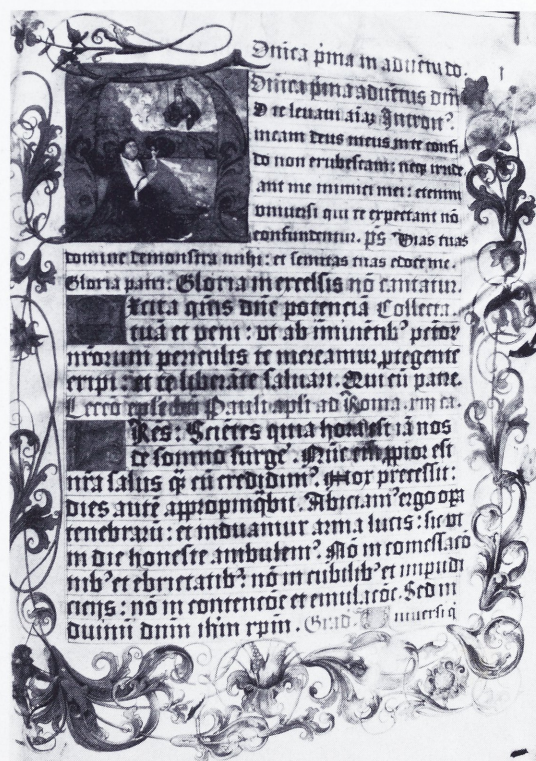 Dnica pma in aduetu do.
Dnica pma aduetus dni
D te leuaui aiaz Intron?.
meam deus meus in te confi
do non erubescam: neqz irride
ant me inimici mei: etenim
vniuersi qui te expectant nō
confundentur. ps Vias tuas
domine demonstra mihi: et semitas tuas edoce me.
Gloria patri: Gloria in excelsis nō cantatur.
Excita qms dne potenciā Collecta.
tuā et veni: vt ab iminētib' pctor
nrorum periculis te mereamur ptegente
eripi: et te liberāte saluari. Qui cū patre.
Leccō eple bti Pauli apli ad Roma. xiii ca.
FRes: Sciētes quia hora est iā nos
de somno surge'. Nūc em ppior est
nra salus q cū credidim?. Nox precessit:
dies autē appropinqbit. Abiciam? ergo opa
tenebrarū: et induamur arma lucis: sic vt
in die honeste ambulem?. Nō in comessacō
nib' et ebrietatib?: nō in cubilib' et impudi
cicijs: nō in contencōe et emulacōe. Sed in
duimi dnm ihm xpm. Grad. Vniuersi q